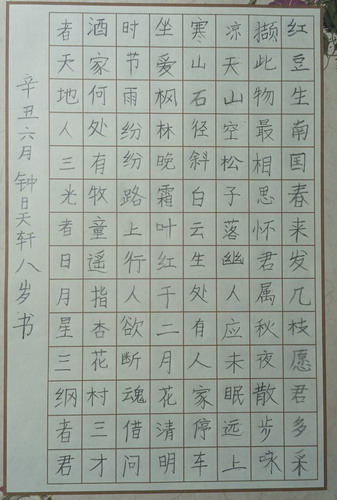 红豆生南国春来发几枝愿君多采
撷此物最相思怀君属秋夜散步咏
凉天山空松子落幽人应未眠远上
寒山石径斜白云生处有人家停车
坐爱枫林晚霜叶红于二月花清明
时节雨纷纷路上行人欲断魂借问
酒家何处有牧童遥指杏花村三才
者天地人三光者日月星三纲者君
辛丑六月 钟昊轩八岁书